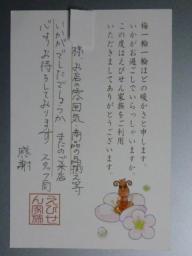 梅一輪一輪ほどの暖かさと申します。
いかがお過ごしでいらっしゃいますか。
この度はえびせん家族をご利用
いただきましてありがとうございます。
様 お店の雰囲気、商品の品揃え等
いかがでしたでしょうか またのご来店
心よりお待ちしております スタッフ一同
感謝
えびせん家族